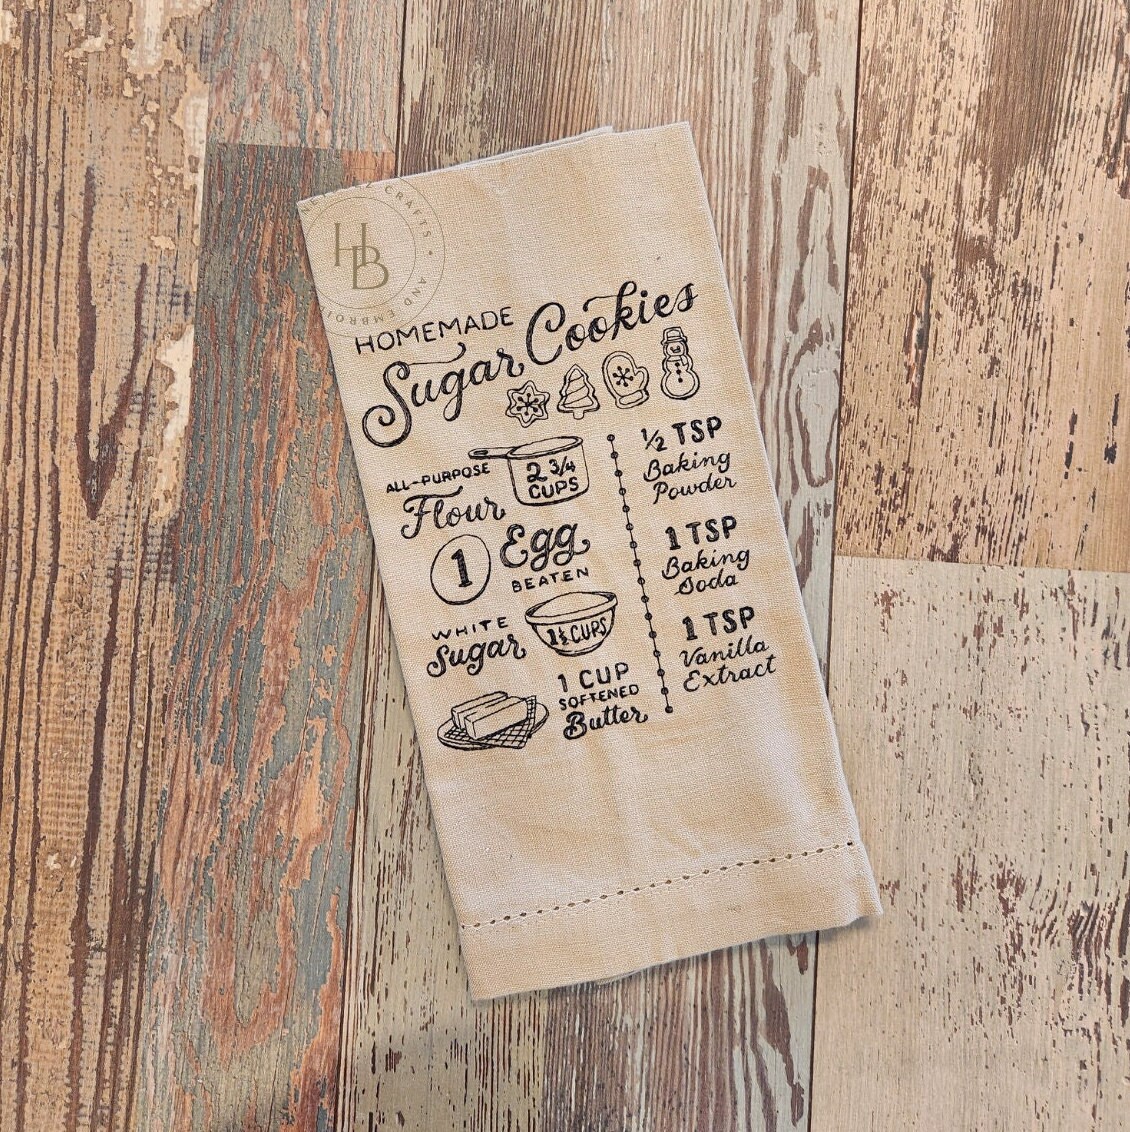 HB
CRAFTS
AND EMBROI
HOMEMADE
Sugar Cookies
ALL-PURPOSE
Flour
2 3/4
CUPS
1
Egg
BEATEN
WHITE
Sugar
1½ CUPS
1 CUP
SOFTENED
Butter
½ TSP
Baking
Powder
1 TSP
Baking
Soda
1 TSP
Vanilla
Extract